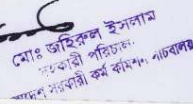 মোঃ জহিরুল ইসলাম
সহকারী পরিচালক
সরকারী কর্ম কমিশন সচিবালয়